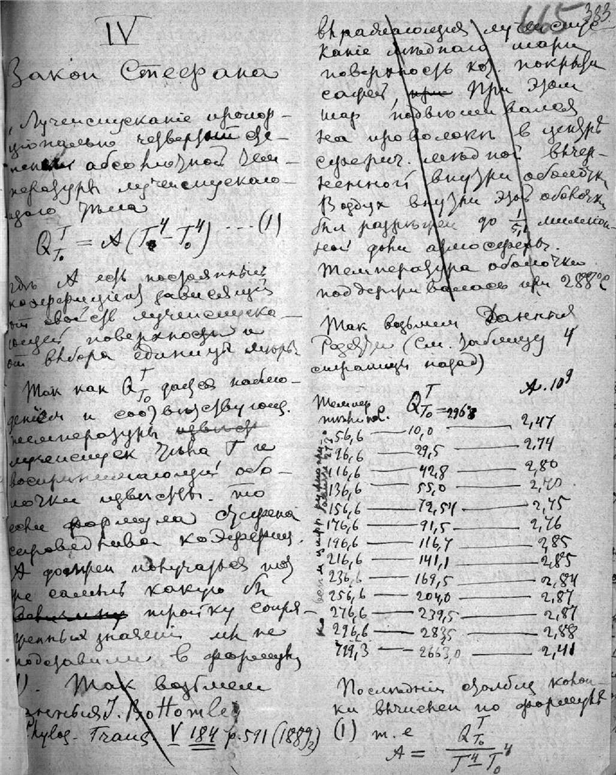 IV
Закон Стефана
Лучеиспусканіе пропор-
ціонально четвертой сте-
пени абсолютной тем-
пературы лучеиспускаю-
щаго тѣла
Q_{T_0}^{T} = A(T^4 - T_0^4) ---- (1)
гдѣ A есть постоянный
коэфиціент зависящій
от свойств лучеиспуска-
ющей поверхности и
от выбора единиц мѣры
Так как Q_{T_0}^{T} дается наблю-
деніем и соответствующ.
температуры
лучеиспуск. тѣла T и
воспринимающей обо-
лочки извѣстны, то
если формула Стефана
справедлива коэфициц.
A должен получаться
не самый какую бы
тройку сопря-
женных значеній мы не
подставили в формулу
1). Так возьмем
данныя J. Bottomley
Phylos. Trans V 184 p. 591 (1892)
465 383
выражающія лучеиспус-
каніе мѣднаго шара
поверхность коз покрыта
сажей, При этом
шар подвѣшивался
на проволокѣ в центрѣ
сферич. мѣдной вычер-
ненной внутри оболочки
Воздух внутри этой оболочки
был разрѣжен до
ной доли атмосферы.
Температура оболочки
поддерживалась при 288°
Так возьмем Данныя
(См. таблицу 4
страницы назад)
Темпер. Q_{T_0}^{T} = 296,8 A·10^9
56,6 — 10,0 — 2,47
96,6 — 29,5 — 2,74
116,6 — 42,8 — 2,80
136,6 — 55,0 — 2,70
156,6 — 72,54 — 2,75
176,6 — 91,5 — 2,76
196,6 — 116,7 — 2,85
216,6 — 141,1 — 2,85
236,6 — 169,5 — 2,84
256,6 — 204,0 — 2,87
276,6 — 239,5 — 2,87
296,6 — 283,5 — 2,88
719,3 — 2663,0 — 2,41
Послѣдній столбец колон-
ки вычислен по формулѣ
(1) т.е
A = Q_{T_0}^{T} / T^4 - T_0^4